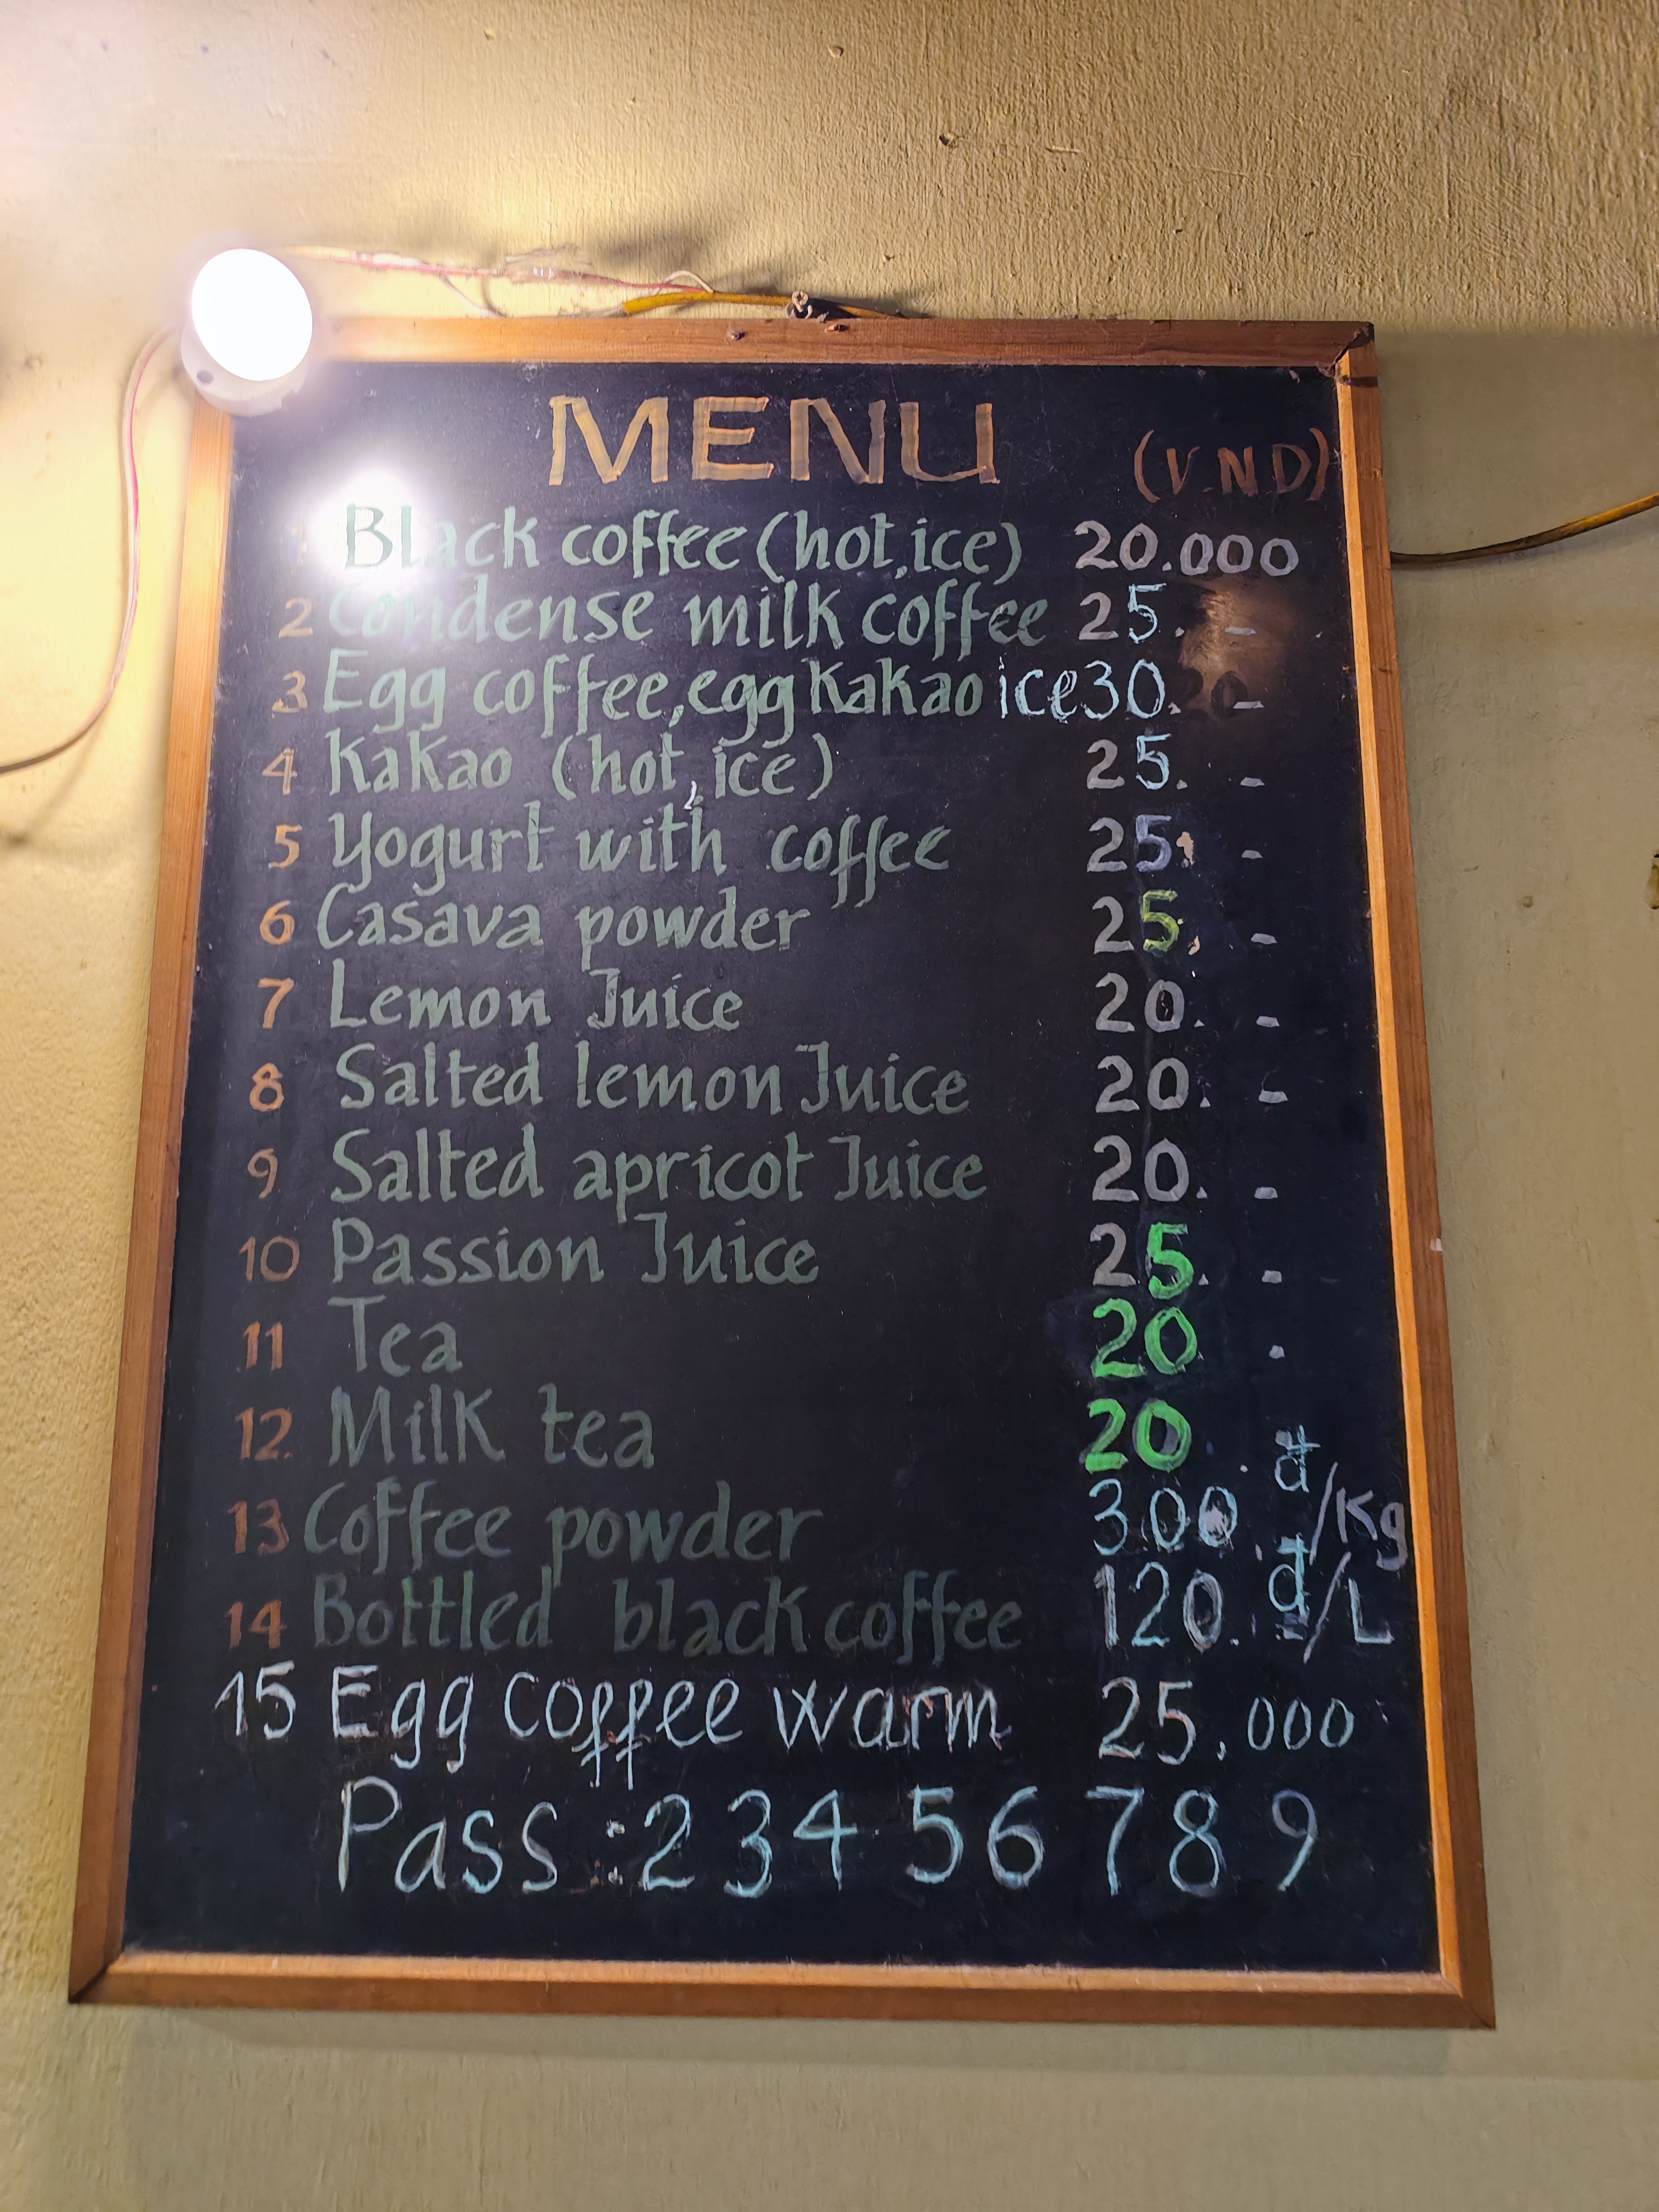 MENU (V.N.D)
Black coffee (hot, ice) 20.000
2 Condense milk coffee 25. -
3 Egg coffee, egg kakao ice 30. -
4 Kakao (hot, ice) 25. -
5 Yogurt with coffee 25. -
6 Casava powder 25. -
7 Lemon Juice 20. -
8 Salted lemon Juice 20. -
9 Salted apricot Juice 20. -
10 Passion Juice 25. -
11 Tea 20 -
12 Milk tea 20
13 Coffee powder 300. đ/Kg
14 Bottled black coffee 120. đ/L
15 Egg coffee warm 25.000
Pass : 2 3 4 5 6 7 8 9